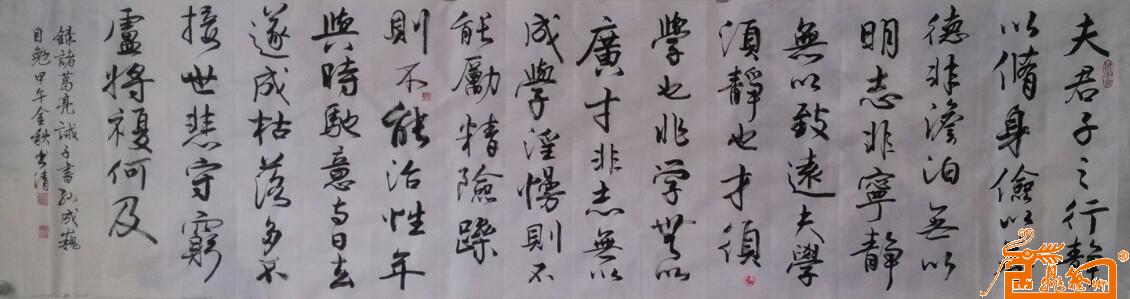 夫君子之行靜
以脩身儉以
德非澹泊无以
明志非寧靜
無以致遠夫學
須靜也才須
學也非学無以
廣才非志無以
成學淫慢則不
能勵精險躁
則不能治性年
與時馳意与日去
遂成枯落多不
接世悲守窮
廬將複何及
錄諸葛亮誡子書
自勉甲午金秋